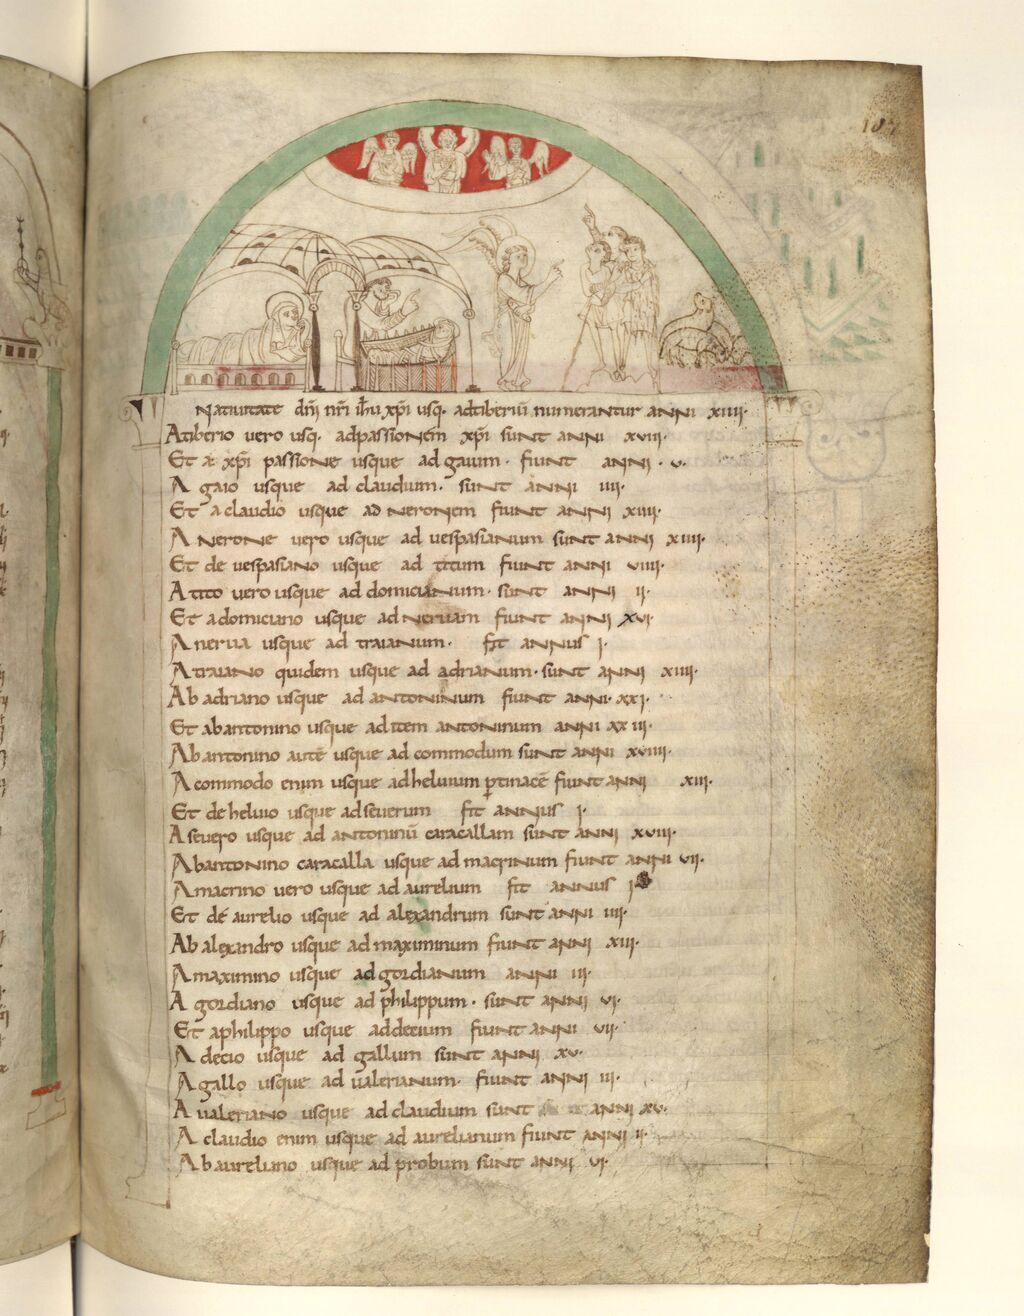 Natiuitate dn̄i nr̄i ih̄u xp̄i usq· adtiberiū numerantur anni xiiii·
Atiberio uero usq· adpassionem xp̄i sunt anni xuiii·
Et a xp̄i passione usque ad gaium· fiunt anni · u·
A gaio usque ad claudium· sunt anni iiii·
Et a claudio usque ad neronem fiunt anni xiiii·
A nerone uero usque ad uespasianum sunt anni xiiii·
Et de uespasiano usque ad titum fiunt anni uiiii·
A tito uero usque ad domicianum· sunt anni ii·
Et adomiciano usque ad neruam fiunt anni xui·
A nerua usque ad traianum· fit annus i·
A traiano quidem usque ad adrianum· sunt anni xiiii·
Ab adriano usque ad antoninum fiunt anni· xxi·
Et abantonino usque ad item antoninum anni xxiii·
Ab antonino autē usque ad commodum sunt anni xuiiii·
A commodo enim usque adheluium ꝑtinacē fiunt anni xiii·
Et de heluio usque adseuerum fit annus i·
A seuero usque ad antoninū caracallam sunt anni xuiii·
Ab antonino caracalla usque ad macrinum fiunt anni uii·
A macrino uero usque ad aurelium fit annus i
Et de aurelio usque ad alexandrum sunt anni iiii·
Ab alexandro usque ad maximinum fiunt anni xiii·
A maximino usque ad gordianum anni iii·
A gordiano usque ad philippum· sunt anni ui·
Et aphilippo usque addecium fiunt anni uii·
A decio usque ad gallum sunt anni xu·
A gallo usque ad ualerianum· fiunt anni iii·
A ualeriano usque ad claudium sunt anni xu·
A claudio enim usque ad aurelianum fiunt anni ii·
Ab aureliano usque ad probum sunt anni ui·